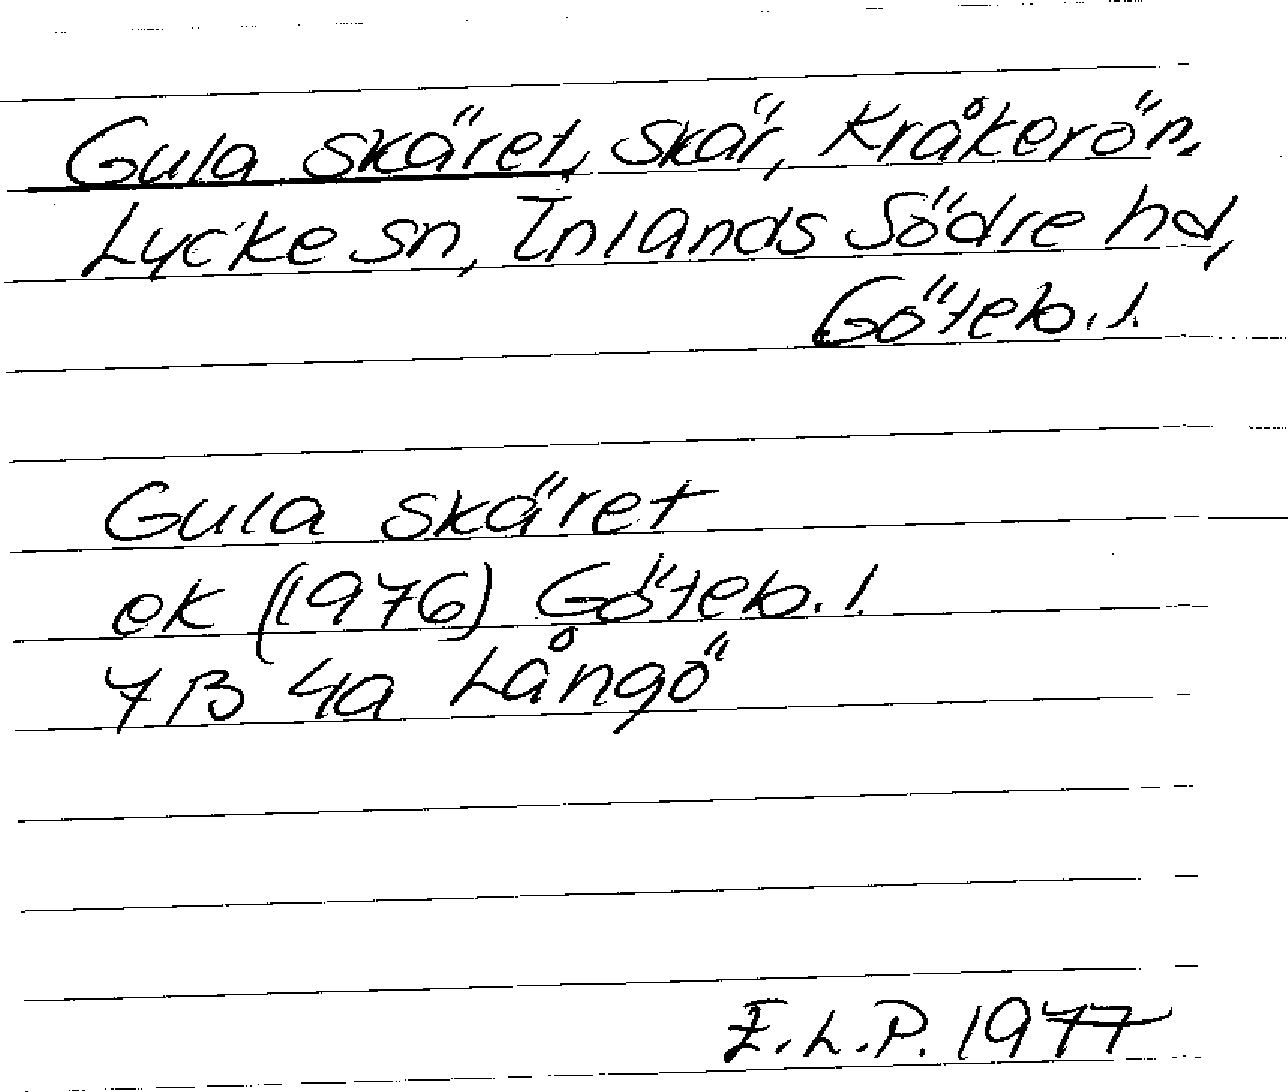 Gula skäret, skär, Kråkerön,
Lycke sn, Inlands Södre hd,
Göteb. l.
Gula skäret
ek (1976) Göteb. l.
7B 4a Långö
E.L.P. 1977